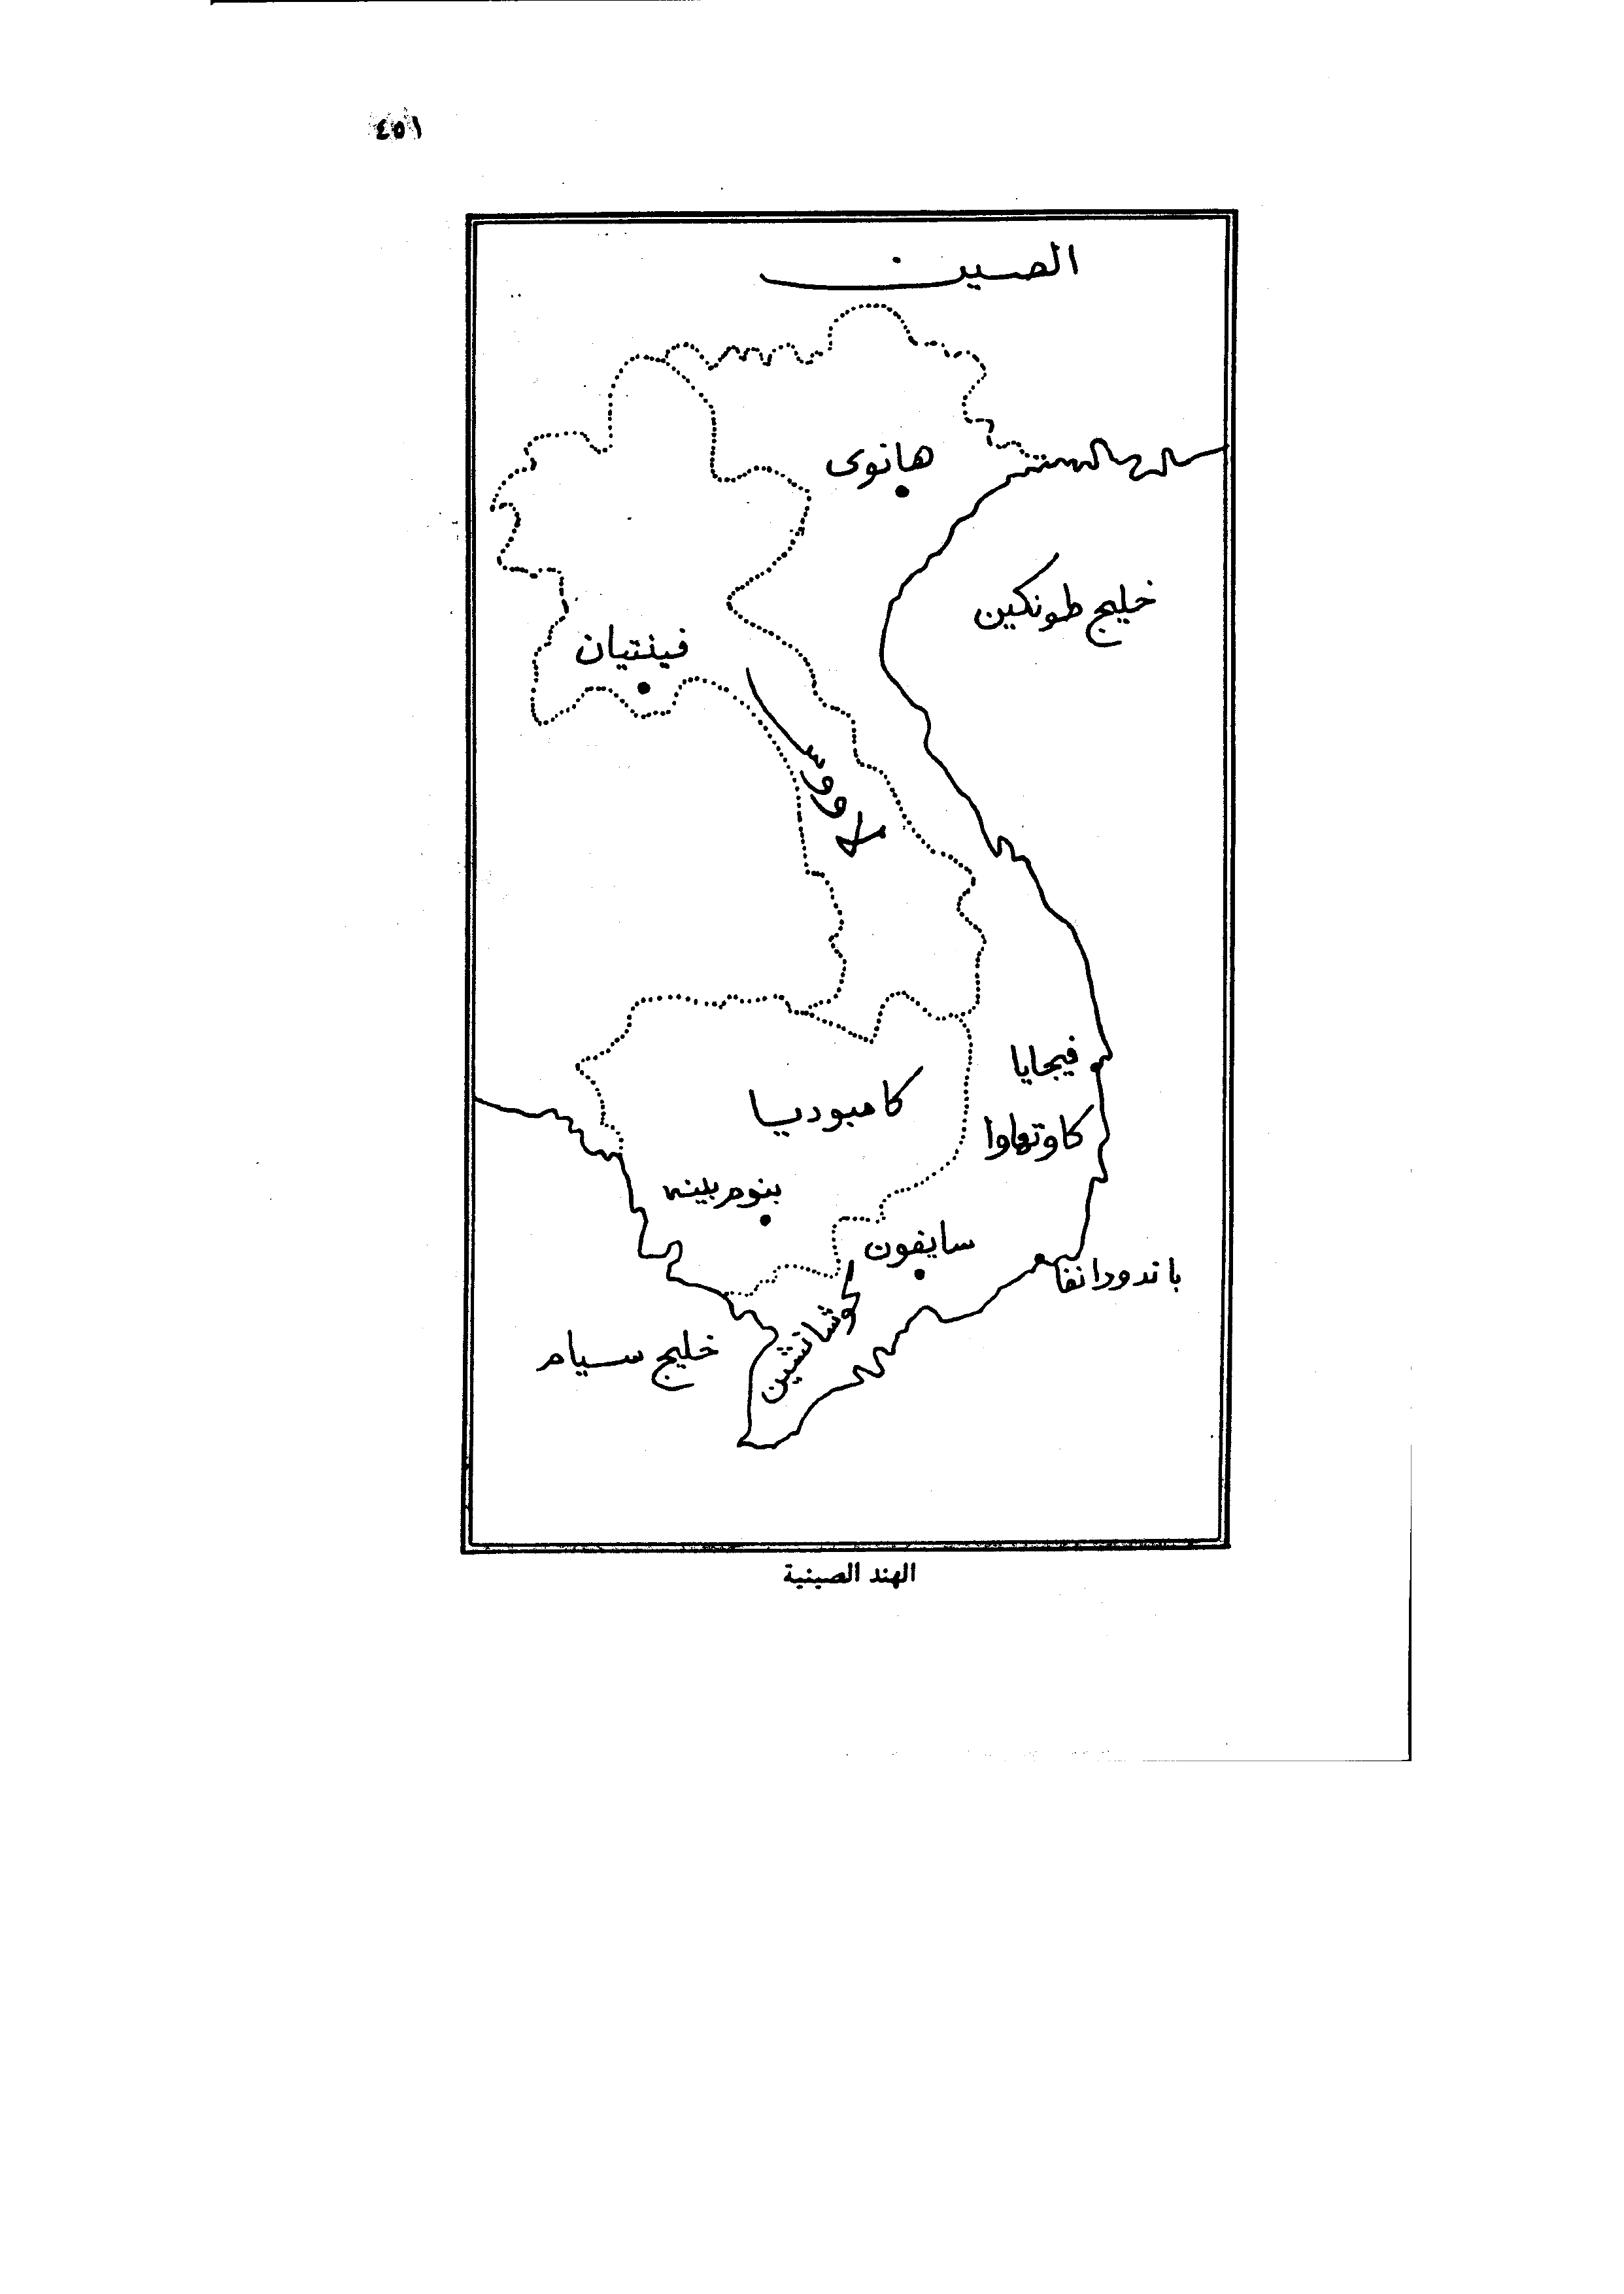 ٤٥١
الصين
هانوى
خليج طونكين
فينتيان
لاووس
فيجايا
كاوتهاوا
كامبوديا
بنوم بينه
سايغون
باندورانغا
كوشانشين
خليج سيام
الهند الصينية